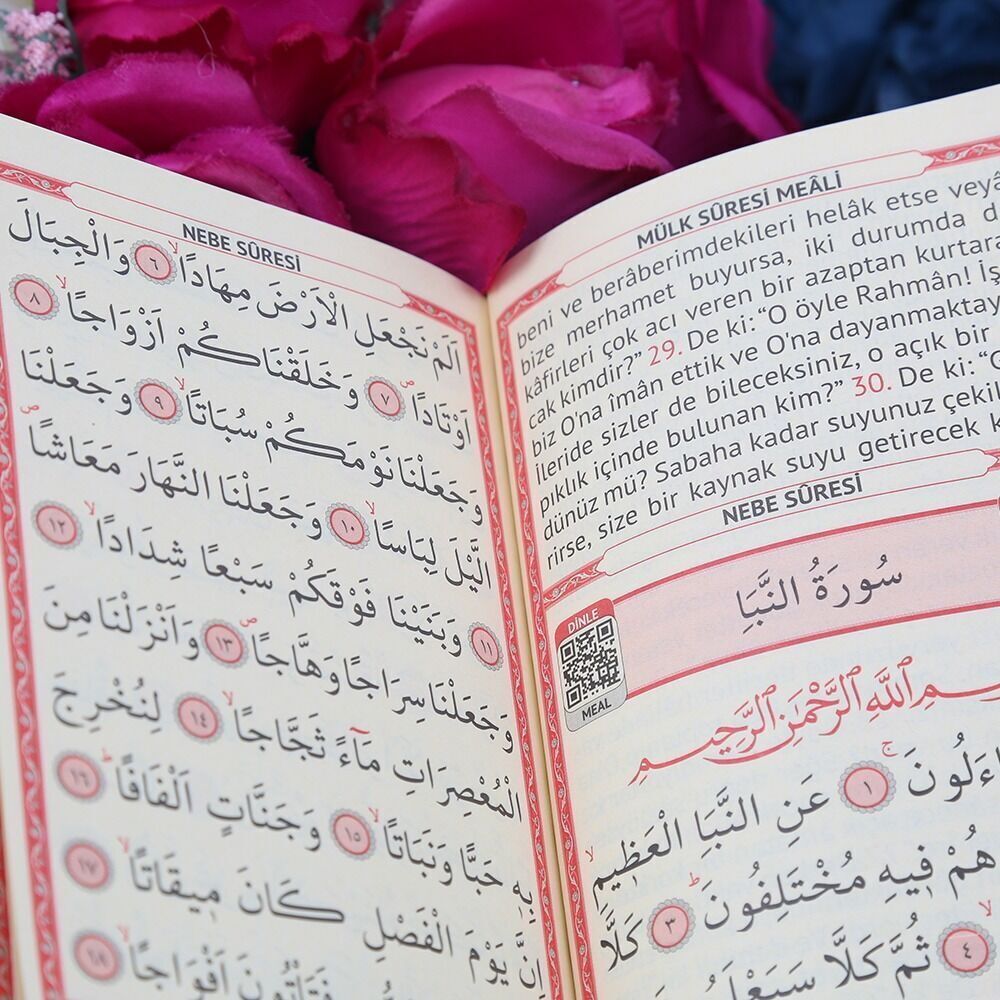 MÜLK SÛRESİ MEÂLİ
beni ve berâberimdekileri helâk etse veyâ
bize merhamet buyursa, iki durumda d
kâfirleri çok acı veren bir azaptan kurtara
cak kimdir?” 29. De ki:“O öyle Rahmân! İş
biz O'na îmân ettik ve O'na dayanmaktay
ileride sizler de bileceksiniz, o açık bir
pıklık içinde bulunan kim?” 30. De ki: “G
dünüz mü? Sabaha kadar suyunuz çekil
rirse, size bir kaynak suyu getirecek k
NEBE SÛRESİ
سُورَةُ النَّبَاِ
DİNLE
MEAL
ـمِ اللّٰهِ الرَّحْمٰنِ الرَّحِيمِ
ـاءَلُونَۚ ﴿١﴾ عَنِ النَّبَاِ الْعَظ۪يمِۙ
هُمْ ف۪يهِ مُخْتَلِفُونَۜ ﴿٣﴾ كَلَّا
﴿٤﴾ ثُمَّ كَلَّا سَيَعْلَمُـ
NEBE SÛRESİ
اَلَمْ نَجْعَلِ الْاَرْضَ مِهَادًاۙ ﴿٦﴾ وَالْجِبَالَ
اَوْتَادًاۖ ﴿٧﴾ وَخَلَقْنَاكُمْ اَزْوَاجًاۙ ﴿٨﴾
وَجَعَلْنَا نَوْمَكُمْ سُبَاتًاۙ ﴿٩﴾ وَجَعَلْنَا
الَّيْلَ لِبَاسًاۙ ﴿١٠﴾ وَجَعَلْنَا النَّهَارَ مَعَاشًاۖ
﴿١١﴾ وَبَنَيْنَا فَوْقَكُمْ سَبْعًا شِدَادًاۙ ﴿١٢﴾
وَجَعَلْنَا سِرَاجًا وَهَّاجًاۖ ﴿١٣﴾ وَاَنْزَلْنَا مِنَ
الْمُعْصِرَاتِ مَٓاءً ثَجَّاجًاۙ ﴿١٤﴾ لِنُخْرِجَ
بِه۪ حَبًّا وَنَبَاتًاۙ ﴿١٥﴾ وَجَنَّاتٍ اَلْفَافًاۜ ﴿١٦﴾
اِنَّ يَوْمَ الْفَصْلِ كَانَ م۪يقَاتًاۙ ﴿١٧﴾
فَتَأْتُونَ اَفْوَاجًاۙ ﴿١٨﴾